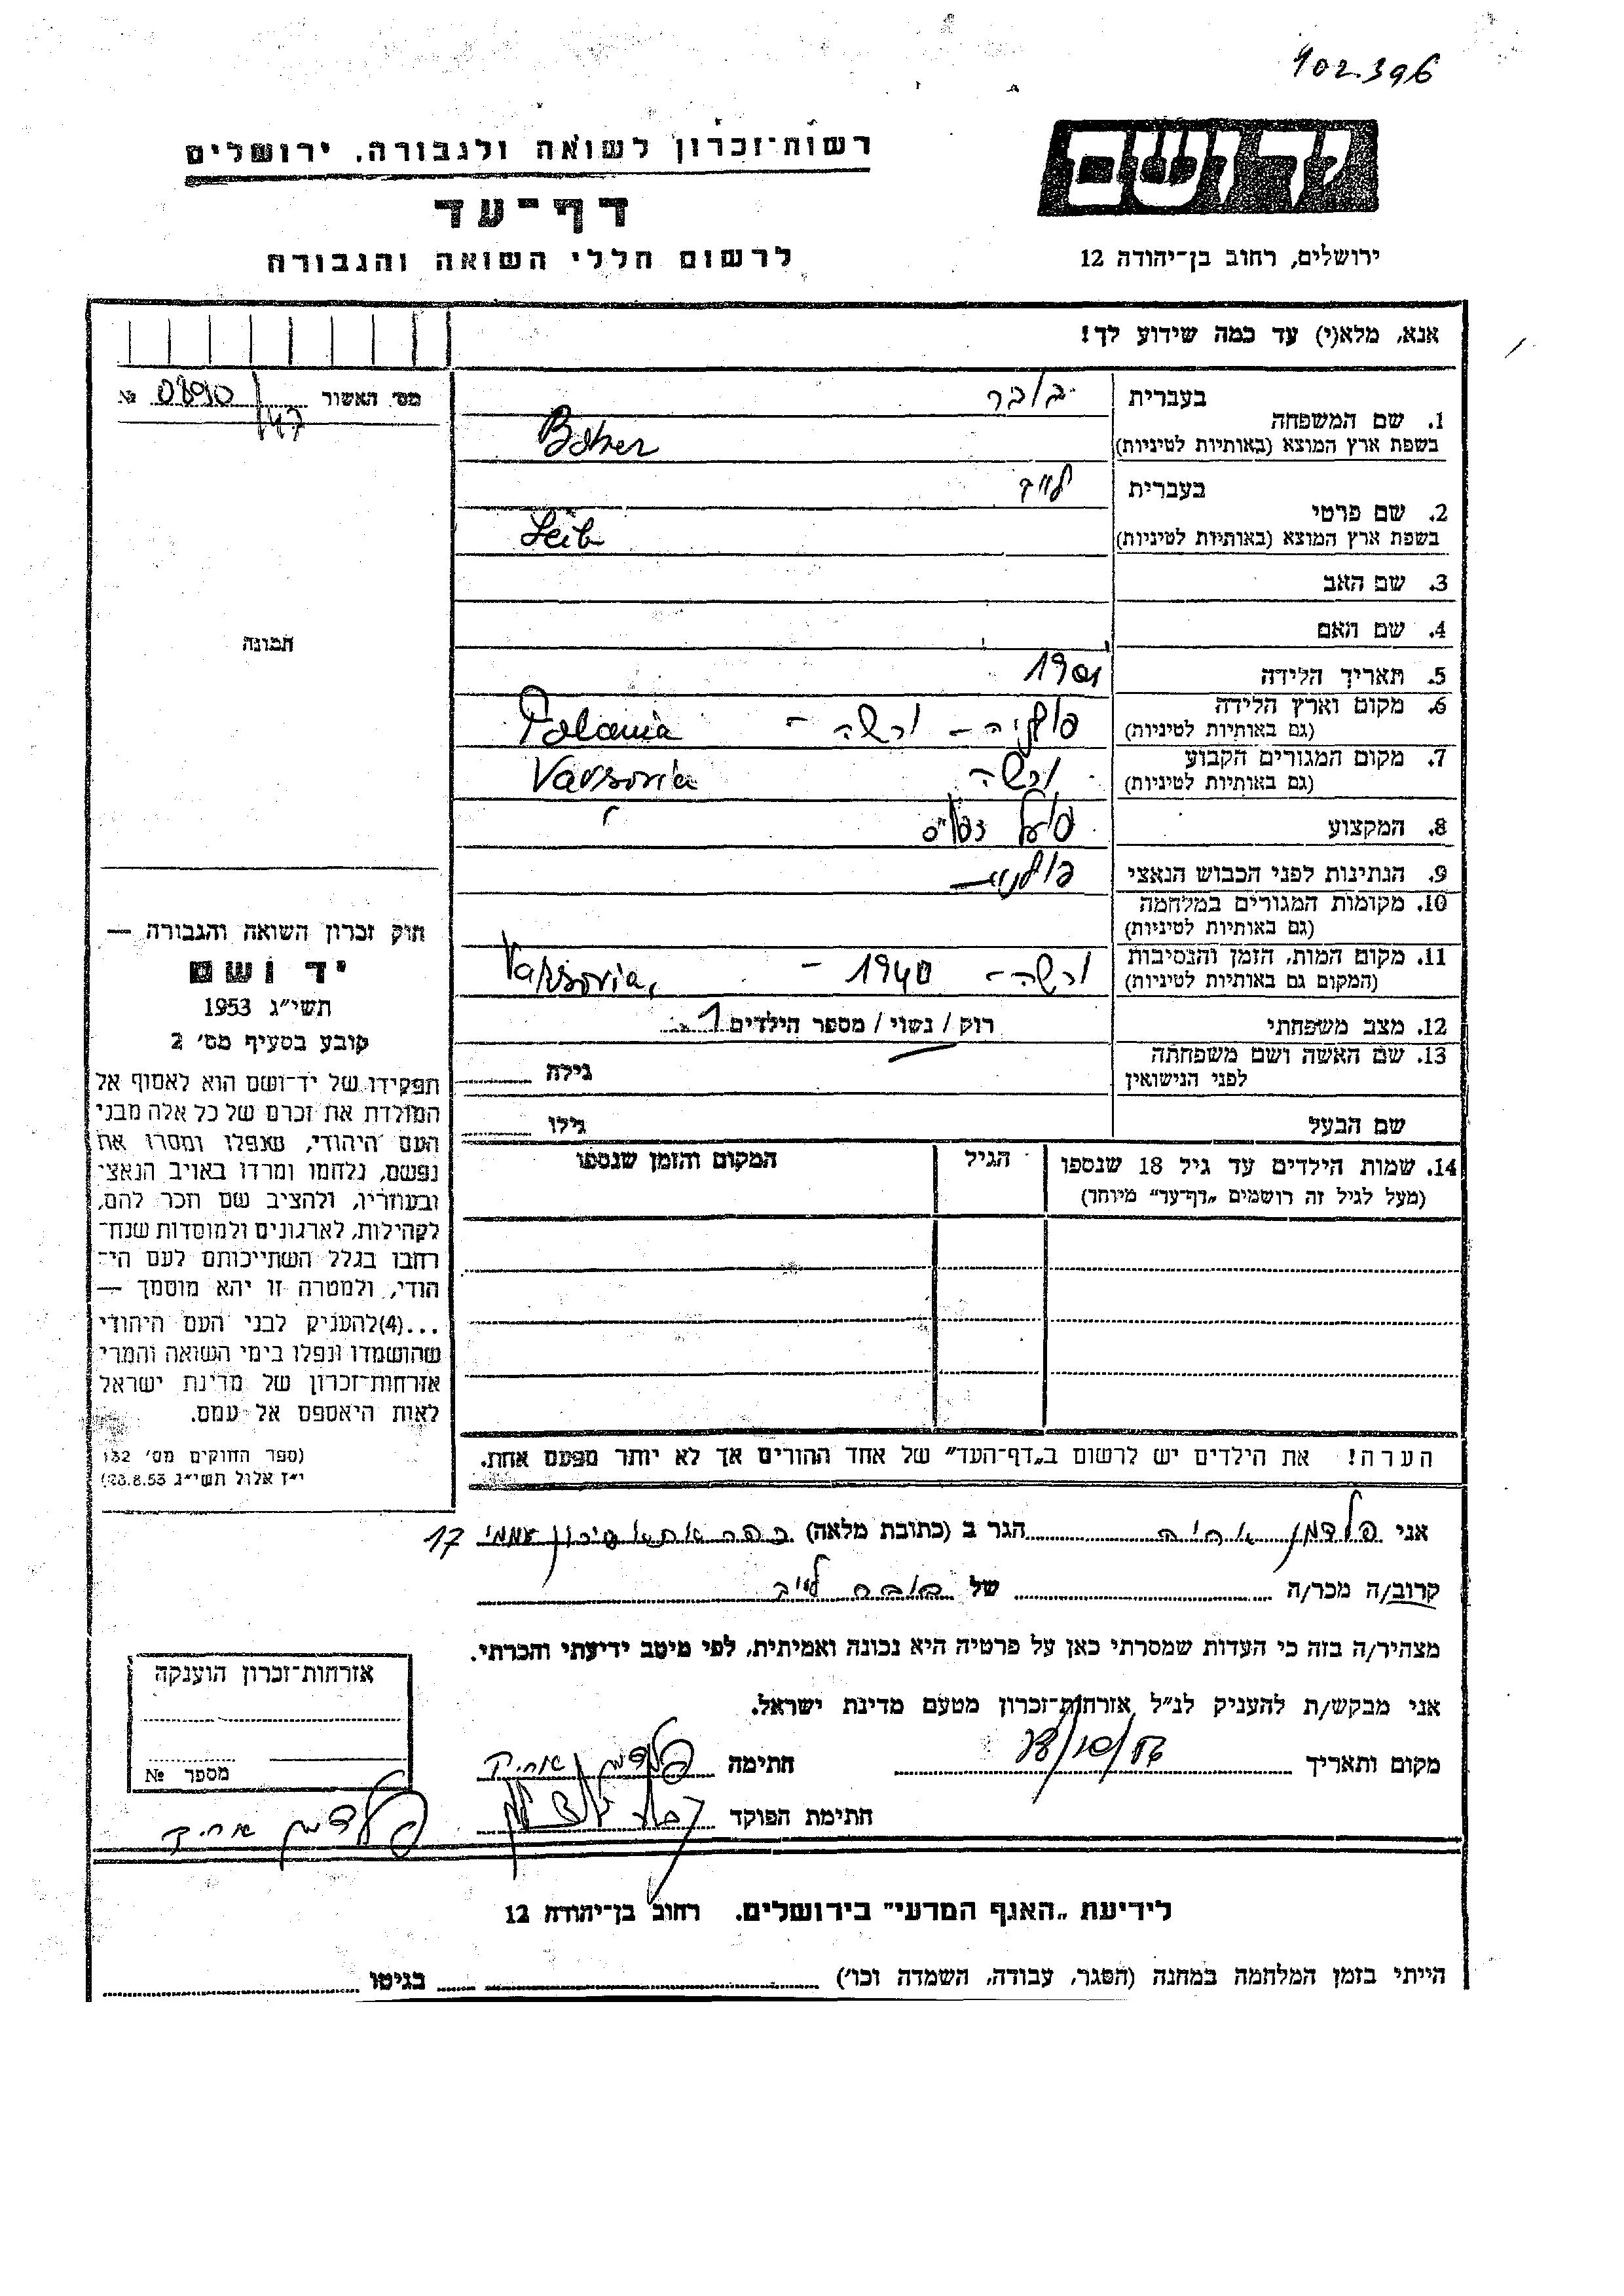 902.396
רשות־זכרון לשואה ולגבורה. ירושלים
ידושם
דף־עד
לרשום חללי השואה והגבורה
ירושלים, רחוב בן־יהודה 12
אנא, מלא(י) עד כמה שידוע לך!
מס׳ האשור 0890/147 №
בעברית
1. שם המשפחה
בשפת ארץ המוצא (באותיות לטיניות)
Boher
בעברית לייב
2. שם פרטי
בשפת ארץ המוצא (באותיות לטיניות)
Leib
3. שם האב
4. שם האם
תמונה
5. תאריך הלידה 1901
6. מקום וארץ הלידה פולניה – ורשה – Polania
(גם באותיות לטיניות)
7. מקום המגורים הקבוע ורשה Varsovia
(גם באותיות לטיניות)
8. המקצוע פועל
9. הנתינות לפני הכבוש הנאצי פולנית
10. מקומות המגורים במלחמה
(גם באותיות לטיניות)
11. מקום המות, הזמן והנסיבות ורשה – 1940 – Varsovia,
(המקום גם באותיות לטיניות)
12. מצב משפחתי רוק / נשוי / מספר הילדים 1
13. שם האשה ושם משפחתה גילה
לפני הנישואין
שם הבעל גילו
14. שמות הילדים עד גיל 18 שנספו הגיל המקום והזמן שנספו
(מעל לגיל זה רושמים „דף־עד״ מיוחד)
הערה! את הילדים יש לרשום ב„דף־העד״ של אחד ההורים אך לא יותר מפעם אחת.
חוק זכרון השואה והגבורה —
יד ושם
תשי״ג 1953
קובע בסעיף מס׳ 2
תפקידו של יד־ושם הוא לאסוף אל
המולדת את זכרם של כל אלה מבני
העם היהודי, שנפלו ומסרו את
נפשם, נלחמו ומרדו באויב הנאצי
ובעוזריו, ולהציב שם וזכר להם,
לקהילות, לארגונים ולמוסדות שנח־
רבו בגלל השתייכותם לעם הי־
הודי, ולמטרה זו יהא מוסמך —
...(4)להעניק לבני העם היהודי
שהושמדו ונפלו בימי השואה והמרי
אזרחות־זכרון של מדינת ישראל
לאות היאספם אל עמם.
(ספר החוקים מס׳ 132
י״ז אלול תשי״ג 28.8.53)
אני פלדמן אריה הגר ב (כתובת מלאה) שיכון עממי 17
קרוב/ה מכר/ה של לייב
מצהיר/ה בזה כי העדות שמסרתי כאן על פרטיה היא נכונה ואמיתית, לפי מיטב ידיעתי והכרתי.
אני מבקש/ת להעניק לנ״ל אזרחות־זכרון מטעם מדינת ישראל.
מקום ותאריך חתימה פלדמן אריה
חתימת הפוקד
אזרחות־זכרון הוענקה
מספר №
פלדמן אריה
לידיעת „האגף המדעי״ בירושלים. רחוב בן־יהודה 12
הייתי בזמן המלחמה במחנה (הסגר, עבודה, השמדה וכו׳) בגיטו